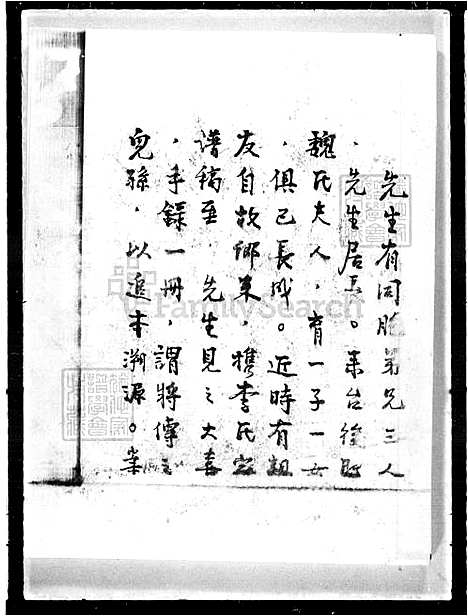 先生有同胞弟兄三人
，先生居長。來台後聘
魏氏夫人，育一子一女
，俱已長成。近時有親
友自故鄉來，攜李氏宗
譜稿至，先生見之大喜
，手錄一冊，謂將傳之
兒孫，以追本溯源。業
FamilySearch